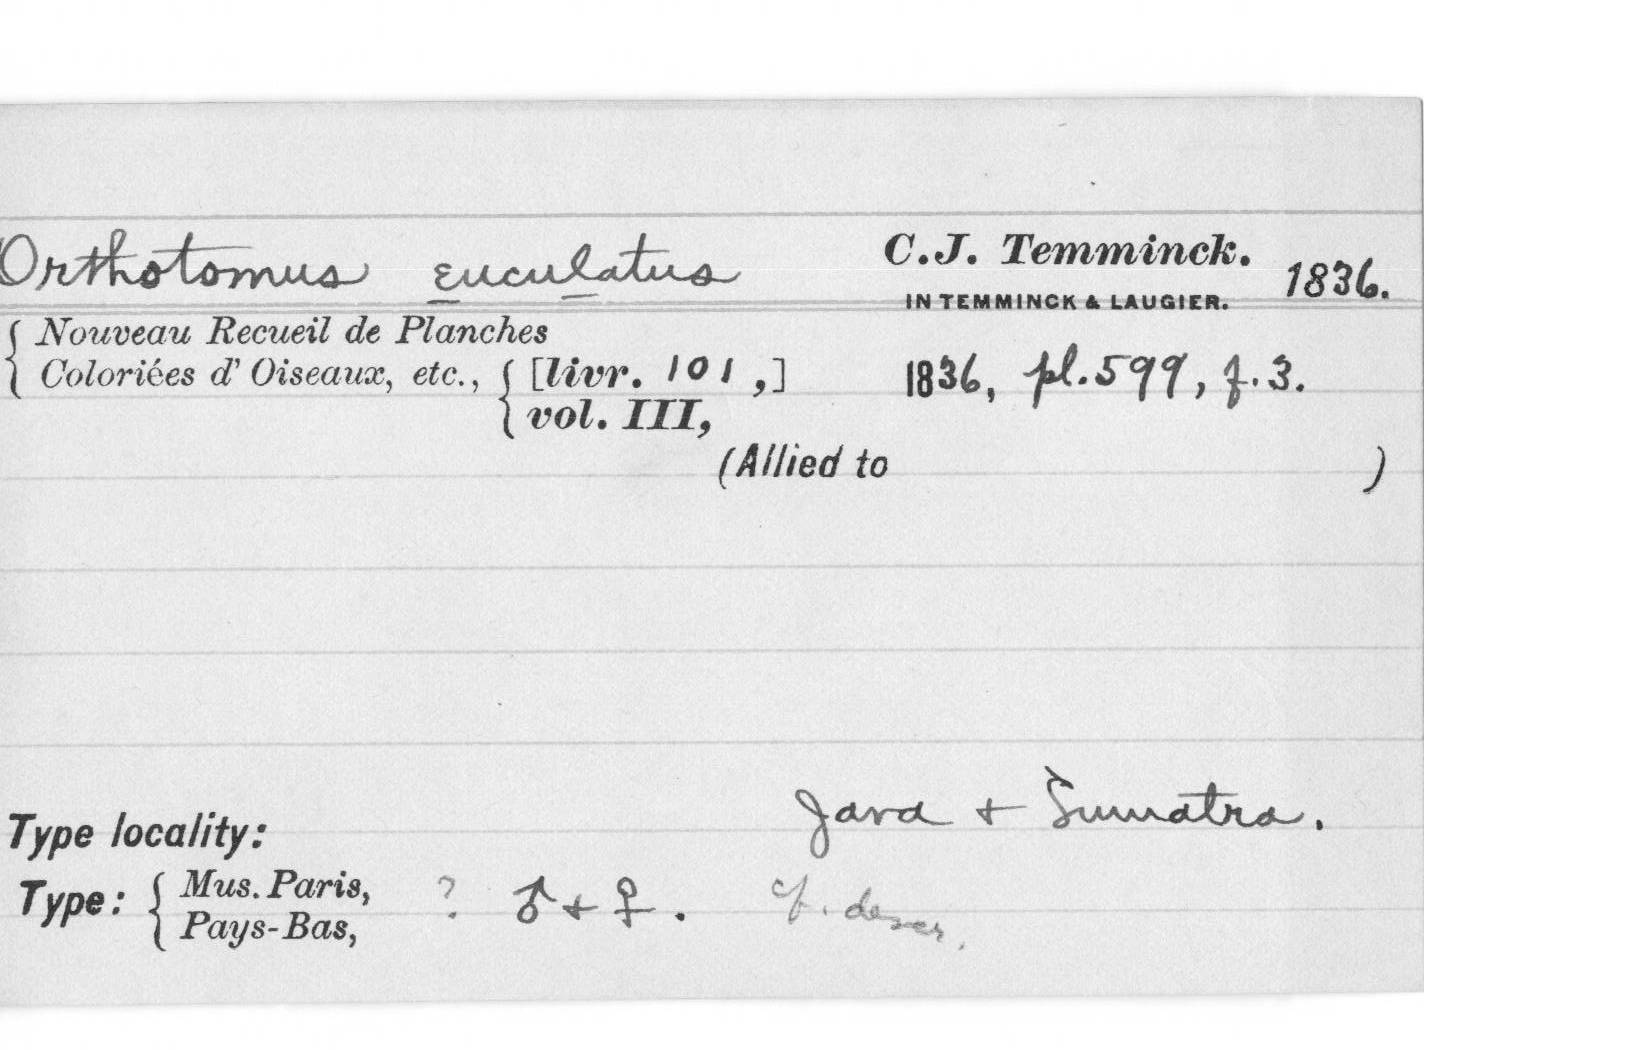 Orthotomus cuculatus C.J. Temminck. 1836.
IN TEMMINCK & LAUGIER.
{ Nouveau Recueil de Planches
Coloriées d' Oiseaux, etc., { [livr. 101,] 1836, pl. 599, f. 3.
vol. III,
(Allied to )
Java + Sumatra.
Type locality:
Type: { Mus. Paris, ? ♂ + ♀. cf. descr.
Pays-Bas,